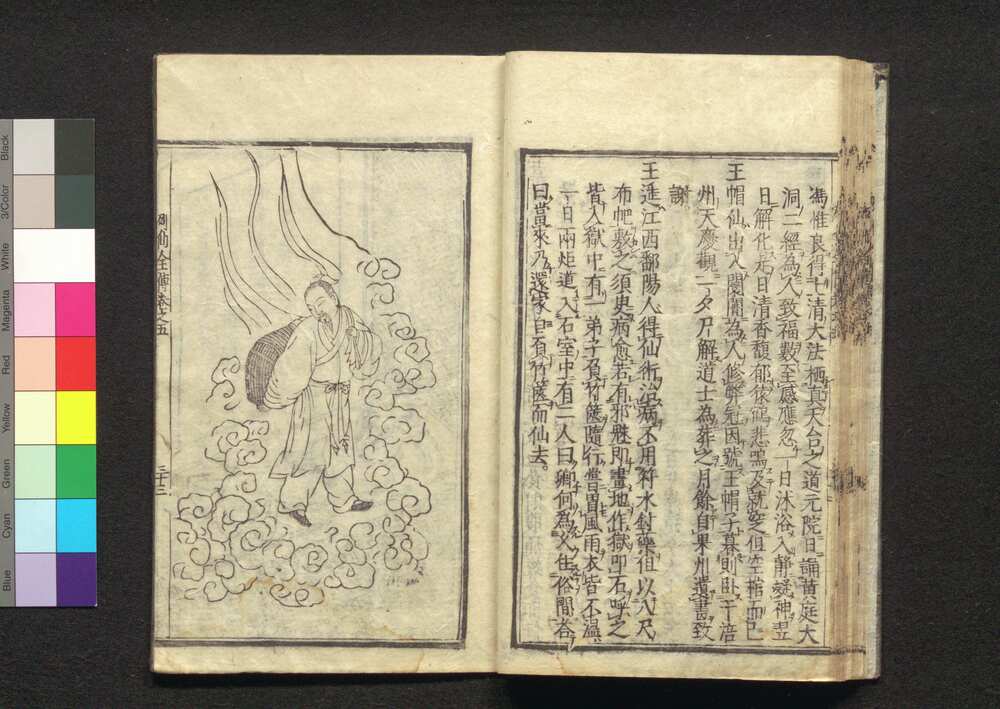 馮惟良得上清大法栖真天台之道元院日誦黄庭大
洞二經為人致福數至感應忽一日沐浴入静凝神翌
日解化尤日清香馥郁猿鶴悲鳴及就窆但空棺而已
王帽仙出入闤闠為人修弊冠因號王帽子暮則臥于涪
州天慶觀一夕尸解道士為葬之月餘自果州遺書致
謝
王進江西鄱陽人得仙術治病不用符水針藥徂以八尺
布帊敷之須臾病愈若有邪魅即畫地作獄即石呼之
皆入獄中有一弟子負竹篋隨行嘗冒風雨衣皆不濕
一日兩炬道入石室中有二人曰卿何為久住俗間荅
曰當來乃還家自負竹篋而仙去
列仙全傳卷之五
三十三
Black
3/Color
White
Magenta
Red
Yellow
Green
Cyan
Blue